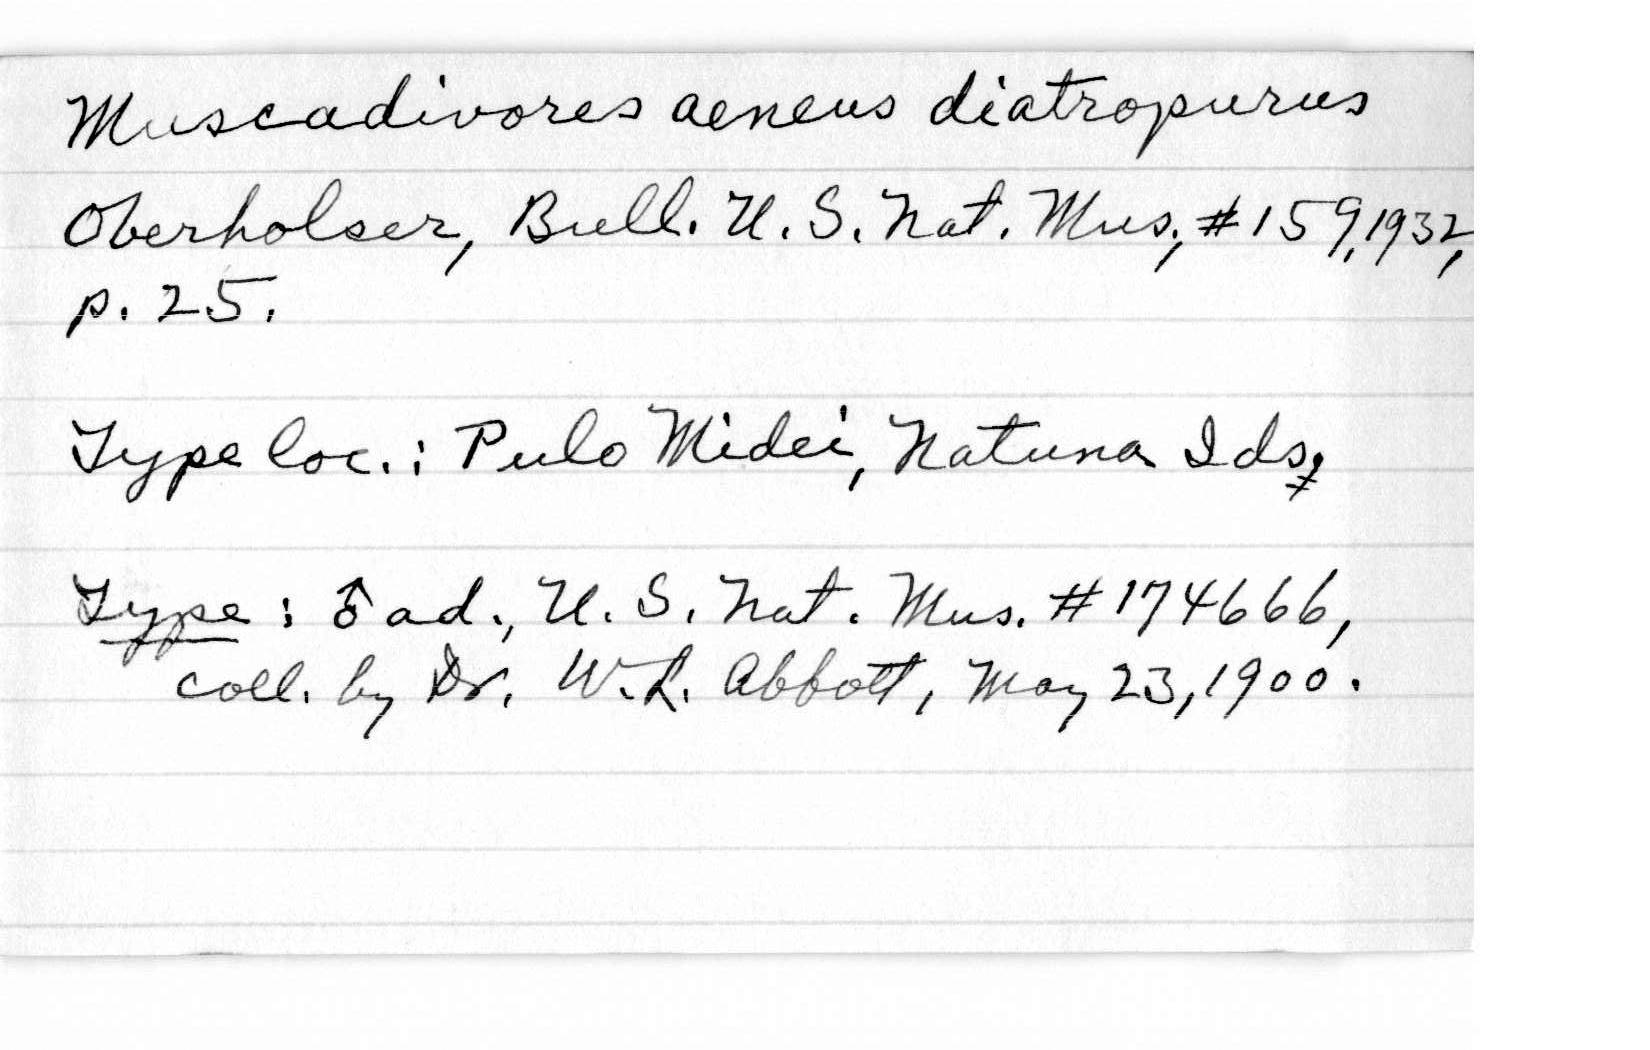 Muscadivores aeneus diatropurus
Oberholser, Bull. U.S. Nat. Mus., #159, 1932,
p. 25.
Type loc.: Pulo Midei, Natuna Ids.
Type: ♂ ad., U.S. Nat. Mus. #174666,
coll. by Dr. W.L. Abbott, May 23, 1900.